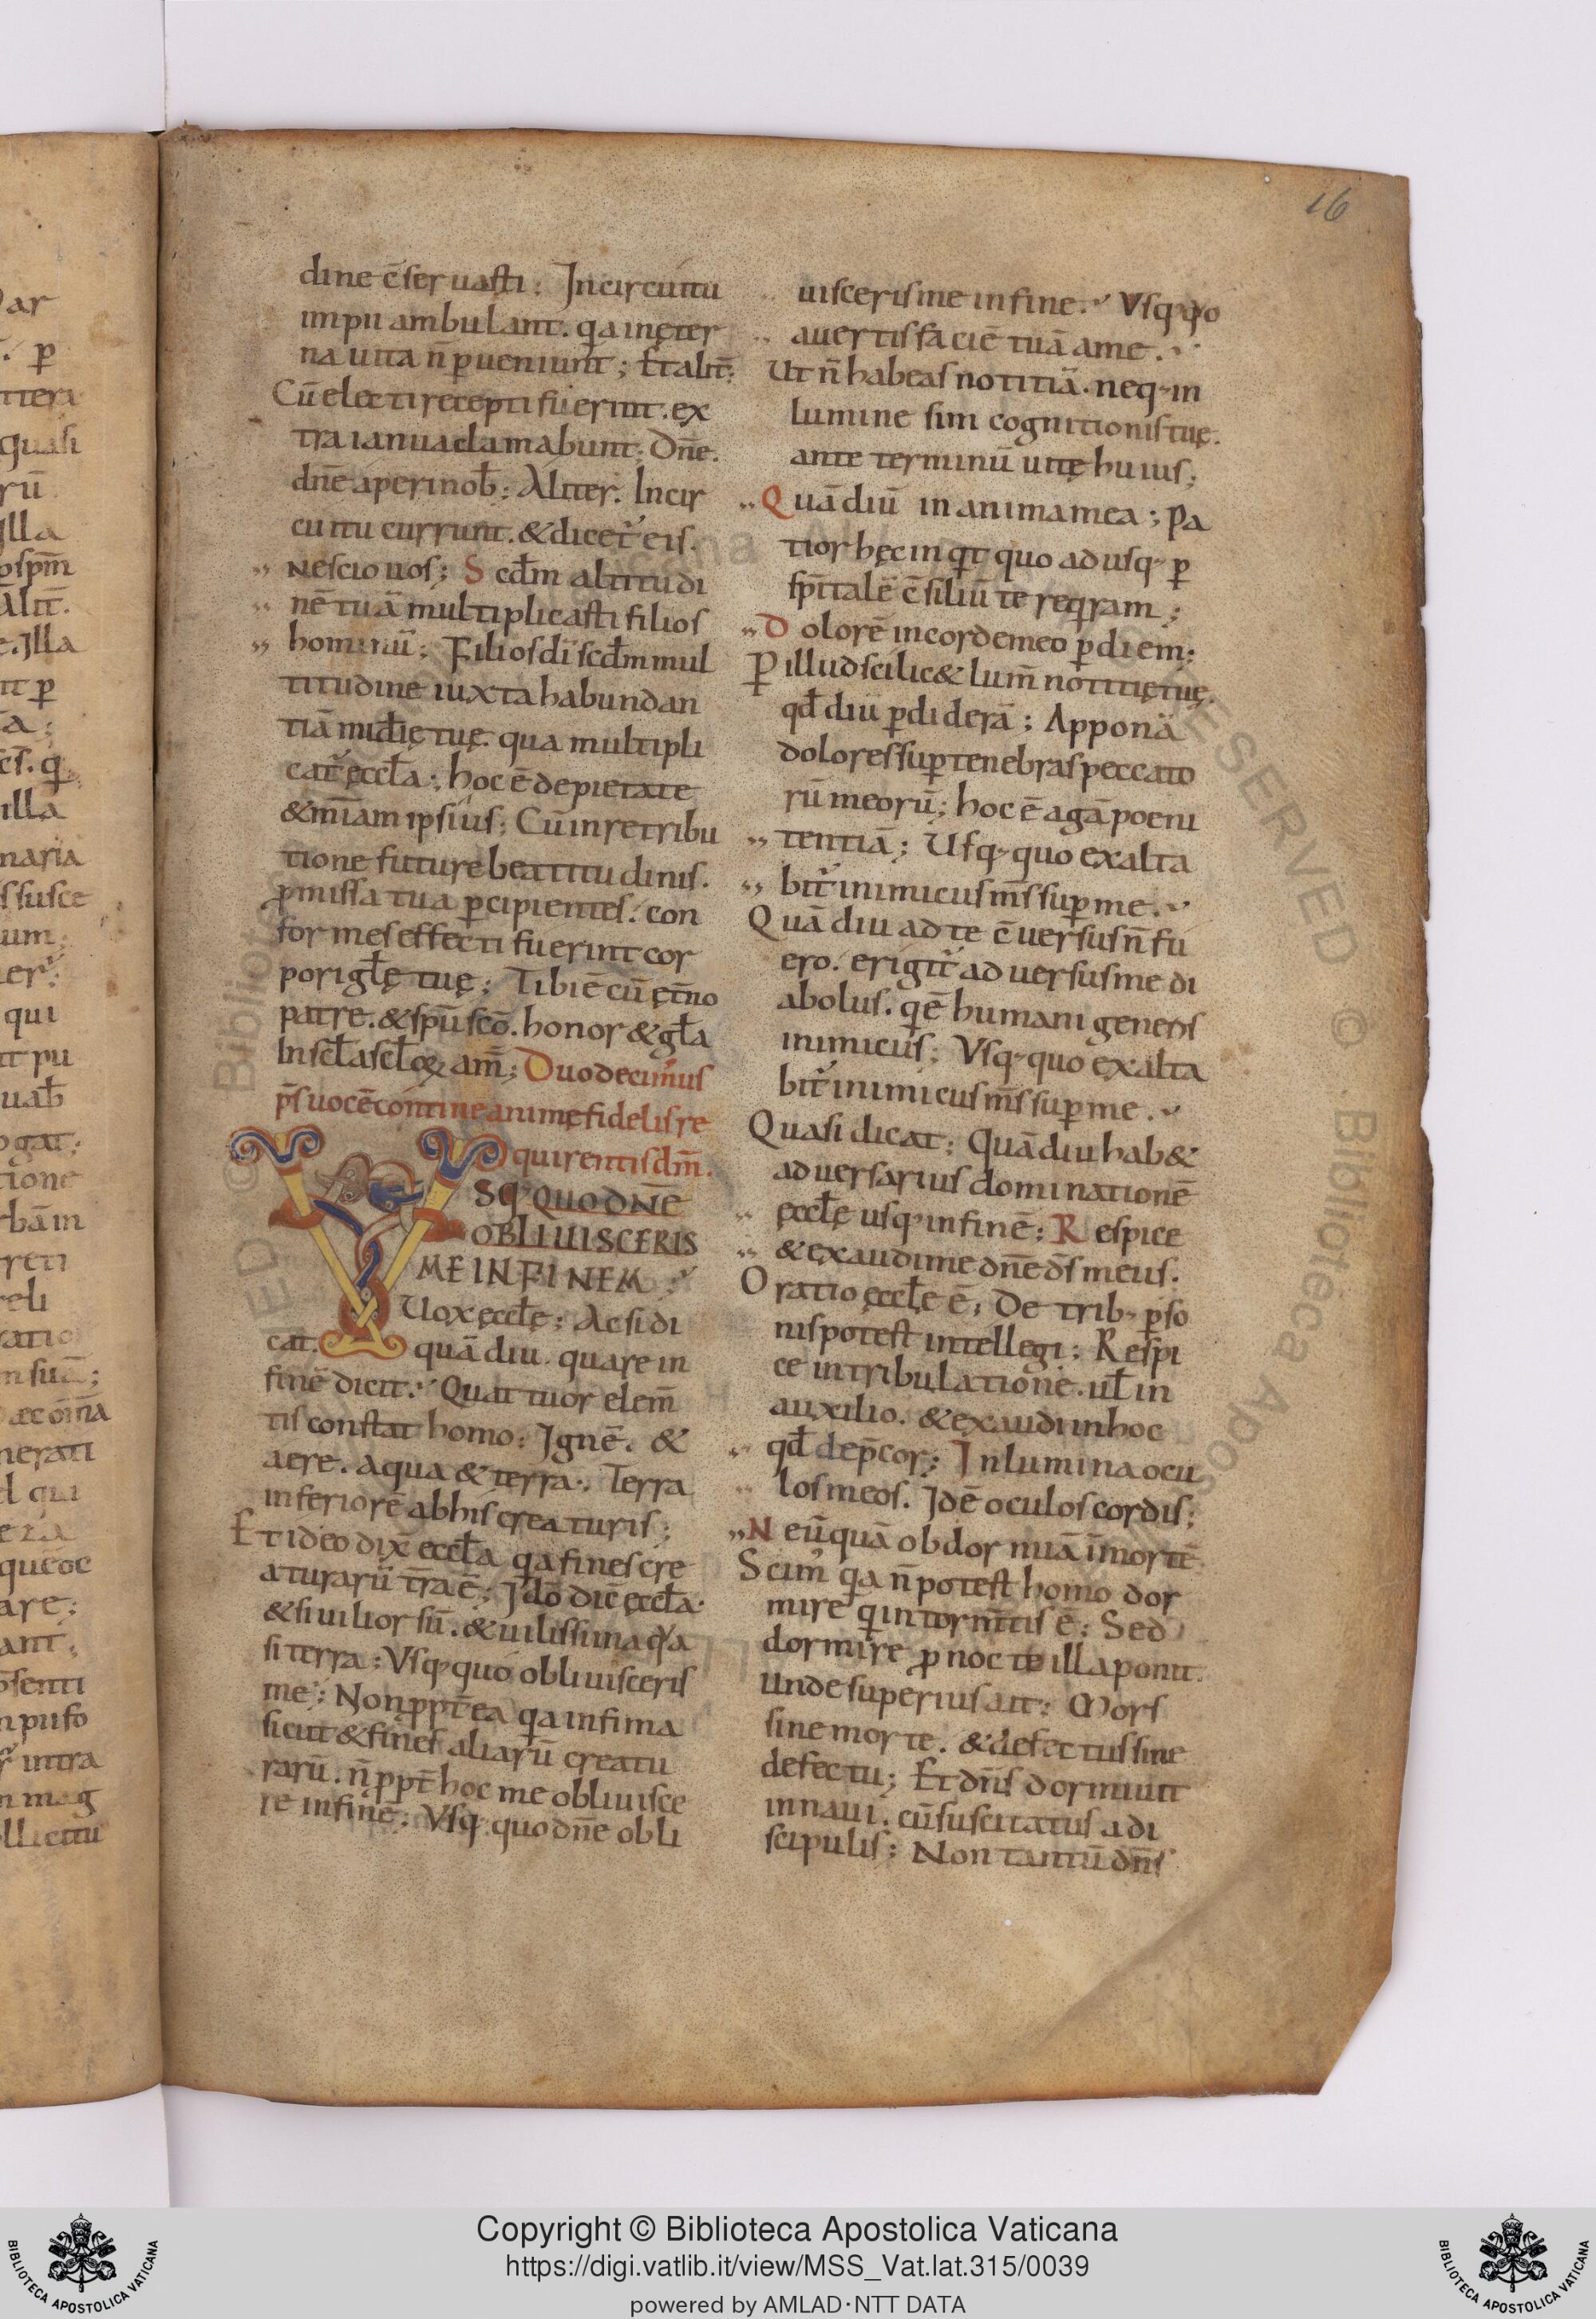 16
dine c̄seruasti; Incircuitu
impii ambulant. qa inęter
na uita n̄ ꝑueniunt; Et alit̄:
Cū electi recepti fuerint. ex
tra ianua clamabunt; Dn̄e.
dn̄e aperi nob̄; Aliter. Incir
cuitu currunt. & dicet̃ eis.
nescio uos; Scdm̄ altitudi
nē tuā multiplicasti filios
hominū; Filios di scdm̄ mul
titudine iuxta habundan
tiā mid̄ie tuę. qua multipli
cat̃ ęccła; hoc ē de pietate
& m̄iam ipsius; Cū in retribu
tione future beatitudinis.
ꝓmissa tua ꝑcipientes. con
formes effecti fuerint cor
pori gł̄ę tuę; Tibi ē cū ęt̄no
patre. & sp̄u sc̄o. honor & gła
In scła scł̄oꝝ am̄; Duodecimus
p̄s uocē contine animę fidelis re
quirentis dm̄.
VSQ; QUO DN̄E
OBLIUISCERIS
ME IN FINEM;
Uox ęccłę; Ac si di
cat. quā diu. quare in
finē dicit; Quattuor elem̄
tis constat homo; Ignē. &
aere. aqua & terra; Terra
inferiorē ab his creaturis;
Et ideo dix̄ ęccła qa fines cre
aturarū t̄ra ē; Ido dic̄ ęccła
& si uilior sū. & uilissima qͣa
si terra; Vsq; quo obliuisceris
me; Non ꝓpt̄ea qa infima
sicut & fines aliarū creatu
rarū. n̄ ꝓpt̄ hoc me obliuisce
re in finē; Vsq; quo dn̄e obli
uisceris me in fine; Vsq; quo
auertis faciē tuā a me.
Ut n̄ habeas notitiā. neq; in
lumine sim cognitionis tuę.
ante terminū uitę huius;
Quādiū in anima mea; Pa
tior hęc inqt quo adusq; ꝑ
sp̄italē c̄siliū te reqram;
Dolorē in corde meo ꝑ diem;
P illud scilic& lum̄ notitię tuę.
qd̄ diu ꝑdiderā; Apponā
dolores suꝑ tenebras peccato
rū meorū; hoc ē agā poeni
tentiā; Usq; quo exalta
bit̃ inimicus m̄s suꝑ me.
Quā diu ad te c̄uersus n̄ fu
ero. erigit̃ aduersus me di
abolus. qē humani generis
inimicus; Vsq; quo exalta
bit̃ inimicus m̄s suꝑ me.
Quasi dicat; Quādiu hab&
aduersarius dominationē
ęccłę usq; in finē; Respice
& exaudi me dn̄e ds̄ meus.
Oratio ęccłe ē; De trib; ꝑso
nis potest intellegi; Respi
ce in tribulatione. uł in
auxilio. & exaudi in hoc
qd̄ dep̄cor; Inlumina ocu
los meos. Idē oculos cordis;
Ne ūquā obdormiā ī mortē.
Scim̉ qa n̄ potest homo dor
mire q in torm̄tis ē; Sed
dormire ꝓ nocte illa ponit.
Unde superius ait; Mors
sine morte. & defectus sine
defectu; Et dn̄s dormiuit
in naui. cū suscitatus a di
scipulis; Non tantū dn̄s
Copyright © Biblioteca Apostolica Vaticana
https://digi.vatlib.it/view/MSS_Vat.lat.315/0039
powered by AMLAD·NTT DATA
BIBLIOTECA APOSTOLICA VATICANA
BIBLIOTECA APOSTOLICA VATICANA